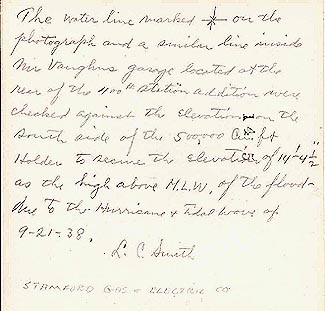 The water line marked ✳ on the
photograph and a similar line inside
Mr Vaughns garage located at the
rear of the 400# station addition were
checked against the elevation on the
south side of the 500,000 Cu ft
Holder to secure the elevation of 14'-4 1/2"
as the high above M.L.W. of the flood-
due to the Hurricane & tidal wave of
9-21-38.
L. C. Smith
STAMFORD GAS & ELECTRIC CO